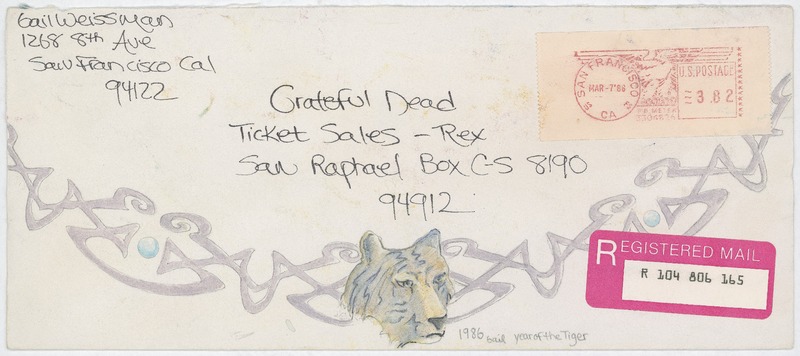 Gail Weissman
1268 8th Ave
San Francisco Cal
94122
Grateful Dead
Ticket Sales - Rex
San Raphael Box C-S 8190
94912
SAN FRANCISCO
MAR-7'86
CA
U.S. POSTAGE
3.82
REGISTERED MAIL
R 104 806 165
1986 Gail year of the Tiger